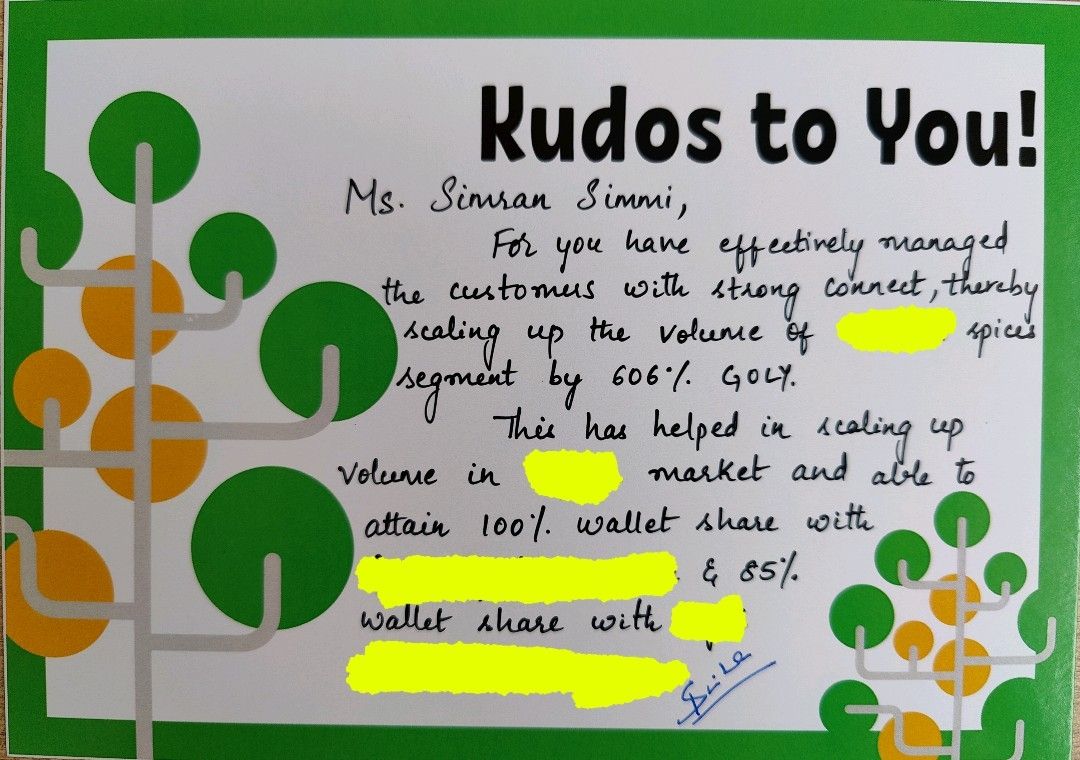 Kudos to You!
Ms. Simran Simmi,
For you have effectively managed
the customers with strong connect, thereby
scaling up the volume of spices
segment by 606% GOLY.
This has helped in scaling up
volume in market and able to
attain 100% wallet share with
& 85%
wallet share with